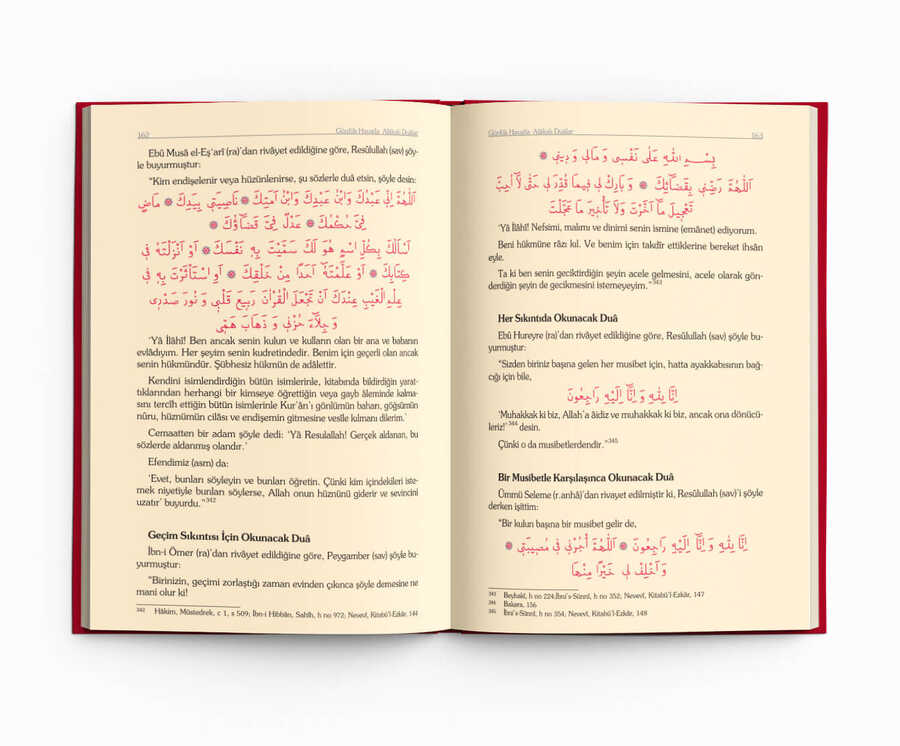 162
Günlük Hayatla Alâkalı Dualar
Ebû Musâ el-Eş'arî (ra)'dan rivâyet edildiğine göre, Resûlullah (sav) şöy-
le buyurmuştur:
"Kim endişelenir veya hüzünlenirse, şu sözlerle duâ etsin, şöyle desin:
اَللّٰهُمَّ اِنّ۪ي عَبْدُكَ وَابْنُ عَبْدِكَ وَابْنُ اَمَتِكَ ❁ نَاصِيَت۪ي بِيَدِكَ ❁ مَاضٍ
فِيَّ حُكْمُكَ ❁ عَدْلٌ فِيَّ قَضَٓاؤُكَ ❁
اَسْاَلُكَ بِكُلِّ اسْمٍ هُوَ لَكَ سَمَّيْتَ بِه۪ نَفْسَكَ ❁ اَوْ اَنْزَلْتَهُ ف۪ي
كِتَابِكَ ❁ اَوْ عَلَّمْتَهُٓ اَحَدًا مِنْ خَلْقِكَ ❁ اَوِ اسْتَأْثَرْتَ بِه۪ ف۪ي
عِلْمِ الْغَيْبِ عِنْدَكَ اَنْ تَجْعَلَ الْقُرْاٰنَ رَب۪يعَ قَلْب۪ي وَ نُورَ صَدْر۪ي
وَ جِلَٓاءَ حُزْن۪ي وَ ذَهَابَ هَمّ۪ي
'Yâ İlâhî! Ben ancak senin kulun ve kulların olan bir ana ve babanın
evlâdıyım. Her şeyim senin kudretindedir. Benim için geçerli olan ancak
senin hükmündür. Şübhesiz hükmün de adâlettir.
Kendini isimlendirdiğin bütün isimlerinle, kitabında bildirdiğin yarat-
tıklarından herhangi bir kimseye öğrettiğin veya gayb âleminde kalma-
sını tercîh ettiğin bütün isimlerinle Kur'ân'ı gönlümün baharı, göğsümün
nûru, hüznümün cilâsı ve endişemin gitmesine vesîle kılmanı dilerim.'
Cemaatten bir adam şöyle dedi: 'Yâ Resulallah! Gerçek aldanan, bu
sözlerde aldanmış olandır.'
Efendimiz (asm) da:
'Evet, bunları söyleyin ve bunları öğretin. Çünki kim içindekileri iste-
mek niyetiyle bunları söylerse, Allah onun hüznünü giderir ve sevincini
uzatır' buyurdu."342
Geçim Sıkıntısı İçin Okunacak Duâ
İbn-i Ömer (ra)'dan rivâyet edildiğine göre, Peygamber (sav) şöyle bu-
yurmuştur:
"Birinizin, geçimi zorlaştığı zaman evinden çıkınca şöyle demesine ne
mani olur ki!
342 Hâkim, Müstedrek, c 1, s 509; İbn-i Hibbân, Sahîh, h no 972; Nevevî, Kitabü'l-Ezkâr, 144
Günlük Hayatla Alâkalı Dualar
163
بِسْمِ اللّٰهِ عَلٰى نَفْس۪ي وَ مَال۪ي وَ د۪ين۪ي ❁
اَللّٰهُمَّ رَضِّن۪ي بِقَضَٓائِكَ ❁ وَ بَارِكْ ل۪ي ف۪يمَا قُدِّرَ ل۪ي حَتّٰى لَٓا اُحِبَّ
تَعْج۪يلَ مَٓا اَخَّرْتَ وَلَا تَأْخ۪يرَ مَا عَجَّلْتَ
'Yâ İlâhî! Nefsimi, malımı ve dinimi senin ismine (emânet) ediyorum.
Beni hükmüne râzı kıl. Ve benim için takdîr ettiklerine bereket ihsân
eyle.
Ta ki ben senin geciktirdiğin şeyin acele gelmesini, acele olarak gön-
derdiğin şeyin de gecikmesini istemeyeyim."343
Her Sıkıntıda Okunacak Duâ
Ebû Hureyre (ra)'dan rivâyet edildiğine göre, Resûlullah (sav) şöyle bu-
yurmuştur:
"Sizden biriniz başına gelen her musibet için, hatta ayakkabısının bağ-
cığı için bile,
اِنَّا لِلّٰهِ وَ اِنَّٓا اِلَيْهِ رَاجِعُونَ
'Muhakkak ki biz, Allah'a âidiz ve muhakkak ki biz, ancak ona dönücü-
leriz!'344 desin.
Çünki o da musibetlerdendir."345
Bir Musibetle Karşılaşınca Okunacak Duâ
Ümmü Seleme (r.anhâ)'dan rivayet edilmiştir ki, Resûlullah (sav)'i şöyle
derken işittim:
"Bir kulun başına bir musibet gelir de,
اِنَّا لِلّٰهِ وَ اِنَّٓا اِلَيْهِ رَاجِعُونَ ❁ اَللّٰهُمَّ أْجُرْن۪ي ف۪ي مُص۪يبَت۪ي ❁
وَ اَخْلِفْ ل۪ي خَيْرًا مِنْهَا
343 Beyhakî, h no 224;İbnü's-Sünnî, h no 352; Nevevî, Kitabü'l-Ezkâr, 147
344 Bakara, 156
345 İbnü's-Sünnî, h no 354; Nevevî, Kitabü'l-Ezkâr, 148